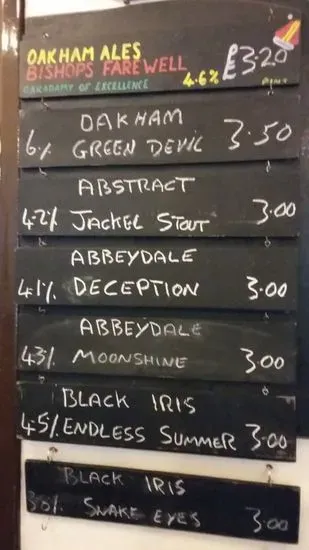 OAKHAM ALES
BISHOPS FAREWELL
£3.20
OAKADAMY OF EXCELLENCE
4.6%
PINT
OAKHAM
6% GREEN DEVIL 3.50
ABSTRACT
4.2% JACKEL STOUT 3.00
ABBEYDALE
4.1% DECEPTION 3.00
ABBEYDALE
4.3% MOONSHINE 3.00
BLACK IRIS
4.5% ENDLESS SUMMER 3.00
BLACK IRIS
3.8% SNAKE EYES 3.00